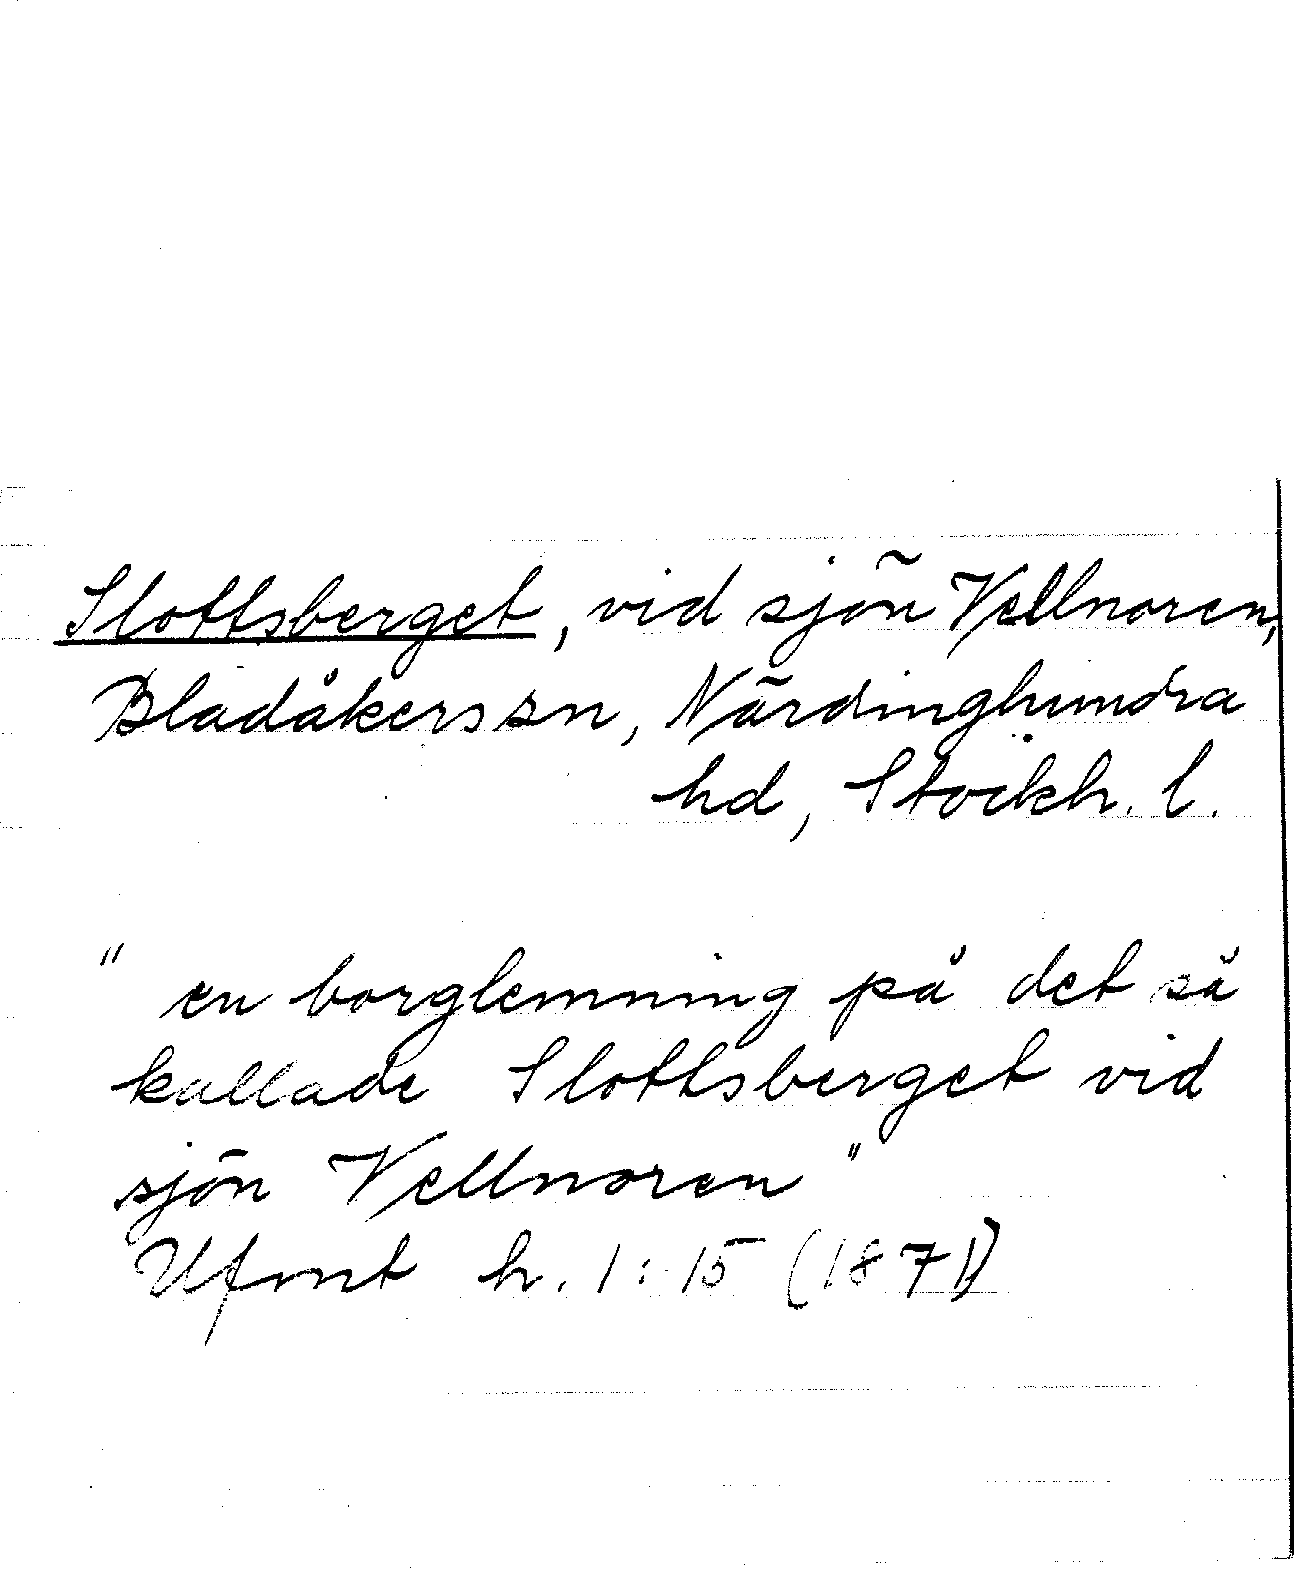 Slottsberget, vid sjön Vellnoren,
Bladåkers sn, Närdinghundra
hd, Stockh. l.
" en borglemning på det så
kallade Slottsberget vid
sjön Vellnoren"
Ufmt h. 1:15 (1871)